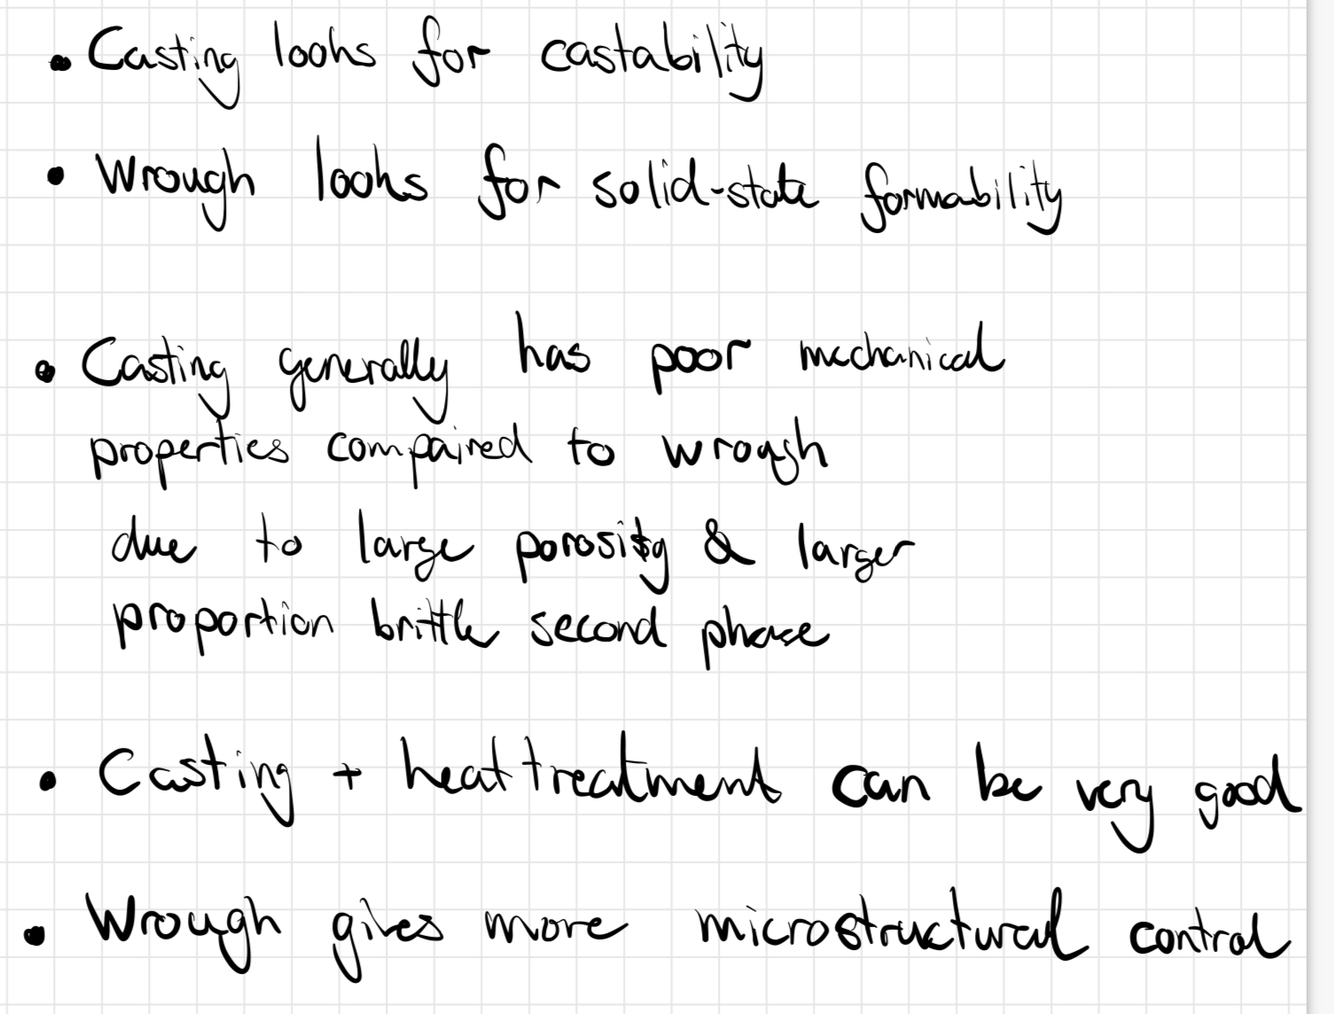 • Casting looks for castability
• Wrough looks for solid-state formability
• Casting generally has poor mechanical
properties compaired to wrough
due to large porosity & larger
proportion brittle second phase
• Casting + heat treatment can be very good
• Wrough gives more microstructural control